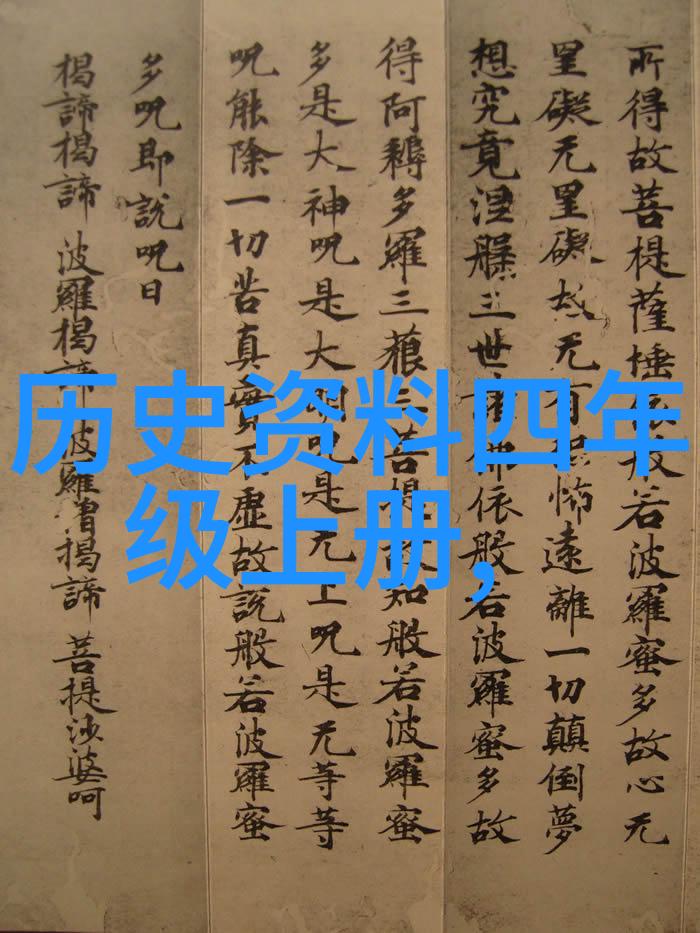 所得故菩提薩埵依般若波羅蜜多故心无
罣礙无罣礙故无有恐怖遠離一切顛倒夢
想究竟涅槃三世諸佛依般若波羅蜜多故
得阿耨多羅三藐三菩提故知般若波羅蜜
多是大神呪是大明呪是无上呪是无等等
呪能除一切苦真實不虛故說般若波羅蜜
多呪即說呪曰
揭諦揭諦 波羅揭諦 波羅僧揭諦 菩提沙婆呵
历史资料四年
级上册,